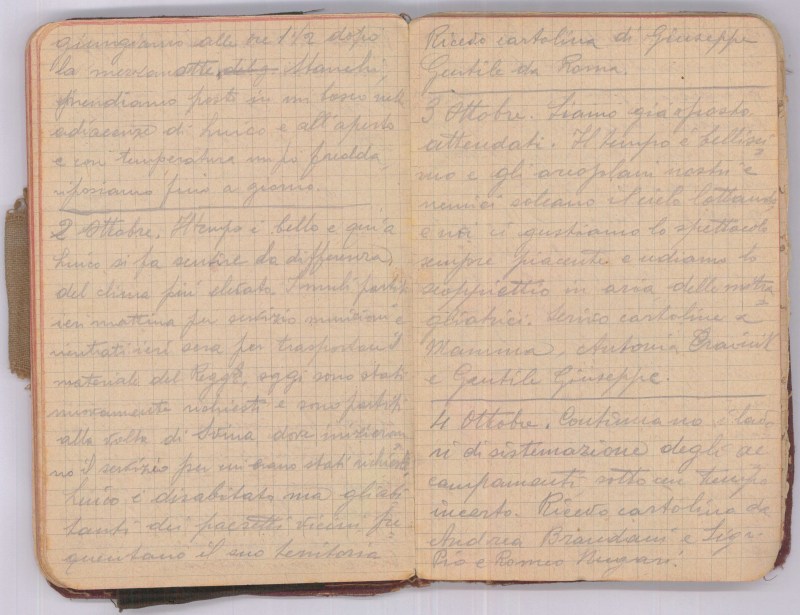 giungiamo alle ore 1 1/2 dopo
la mezzanotte. Stanchi
prendiamo posto in un bosco nelle
adiacenze di Luico e all'aperto
e con temperatura un po fredda,
riposiamo fino a giorno.
2 Ottobre. Il tempo è bello e qui a
Luico si fa sentire la differenza
del clima più elevato. I muli partiti
ieri mattina per servizio munizioni e
rientrati ieri sera per trasportare il
materiale del Regg.to, oggi sono stati
nuovamente richiesti e sono partiti
alla volta di dove inizieran
no il servizio per cui erano stati richiesti.
Luico è disabitato ma gli abi
tanti dei paesetti vicini fre
quentano il suo territorio
Ricevo cartolina di Giuseppe
Gentile da Roma.
3 Ottobre. Siamo già a posto
attendati. Il tempo è bellissi
mo e gli areoplani nostri e
nemici solcano il cielo lottando
e noi ci gustiamo lo spettacolo
sempre piacente e udiamo lo
scoppiettio in aria delle mitra
gliatrici. Scrivo cartoline a
Mamma, Antonia
e Gentile Giuseppe.
4 Ottobre. Continuano i lavo
ri di sistemazione degli ac
campamenti sotto un tempo
incerto. Ricevo cartolina da
Andrea Brandani e Sigr
Pio e Romeo